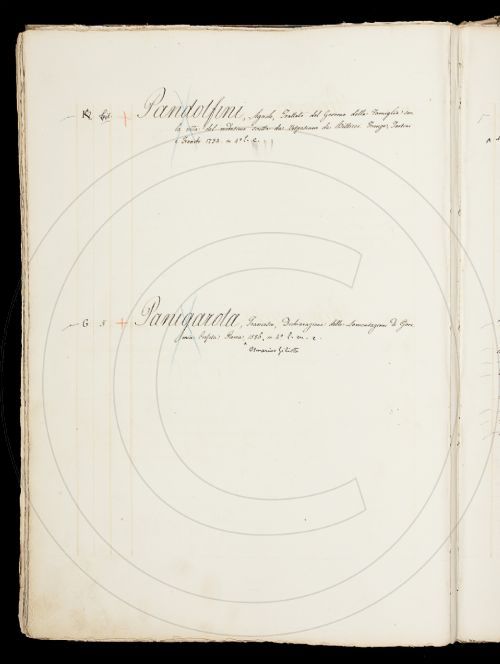 Pandolfini, Agnolo, Trattato del Governo della Famiglia con
la vita del medesimo scritta da Vespasiano da Bisticci. Firenze, Tartini
e Franchi 1734 in 4° l. c.
G 5 + Panigarola, Francesco, Dichiarazione delle Lamentazioni di Gere
mia Profeta. Roma 1586 in 8° l. m. c.